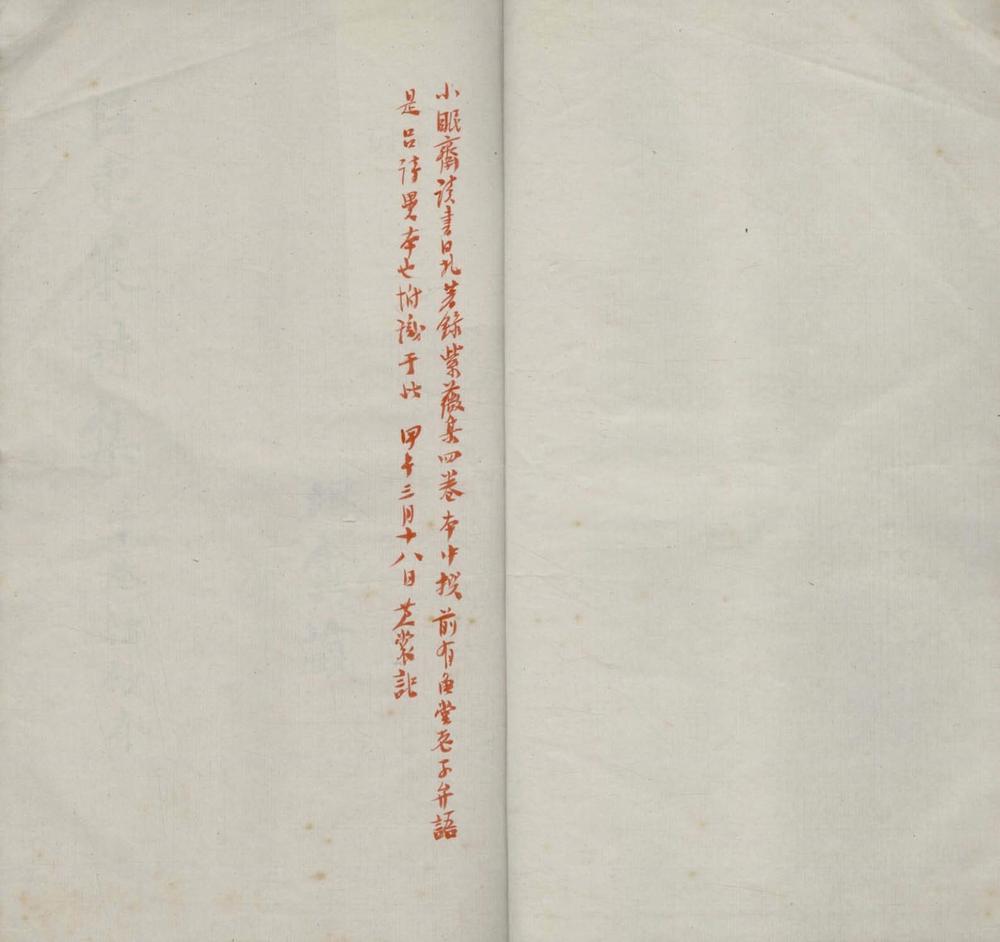 小眠齋讀書日札著錄紫薇集四卷本中撰前有魚堂老子弁語
是呂詩異本也附識于此 甲午三月十八日芷裳記